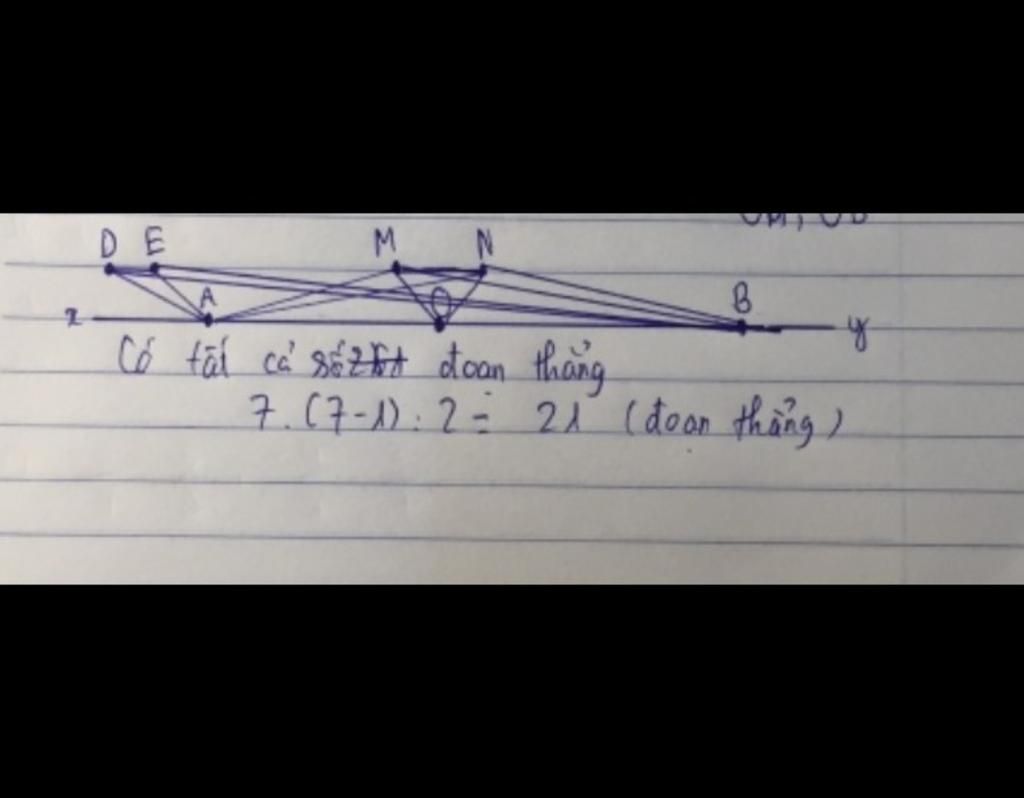 D E M N
A O B
x y
Có tất cả số đoạn thẳng
7.(7-1):2= 21 (đoạn thẳng)